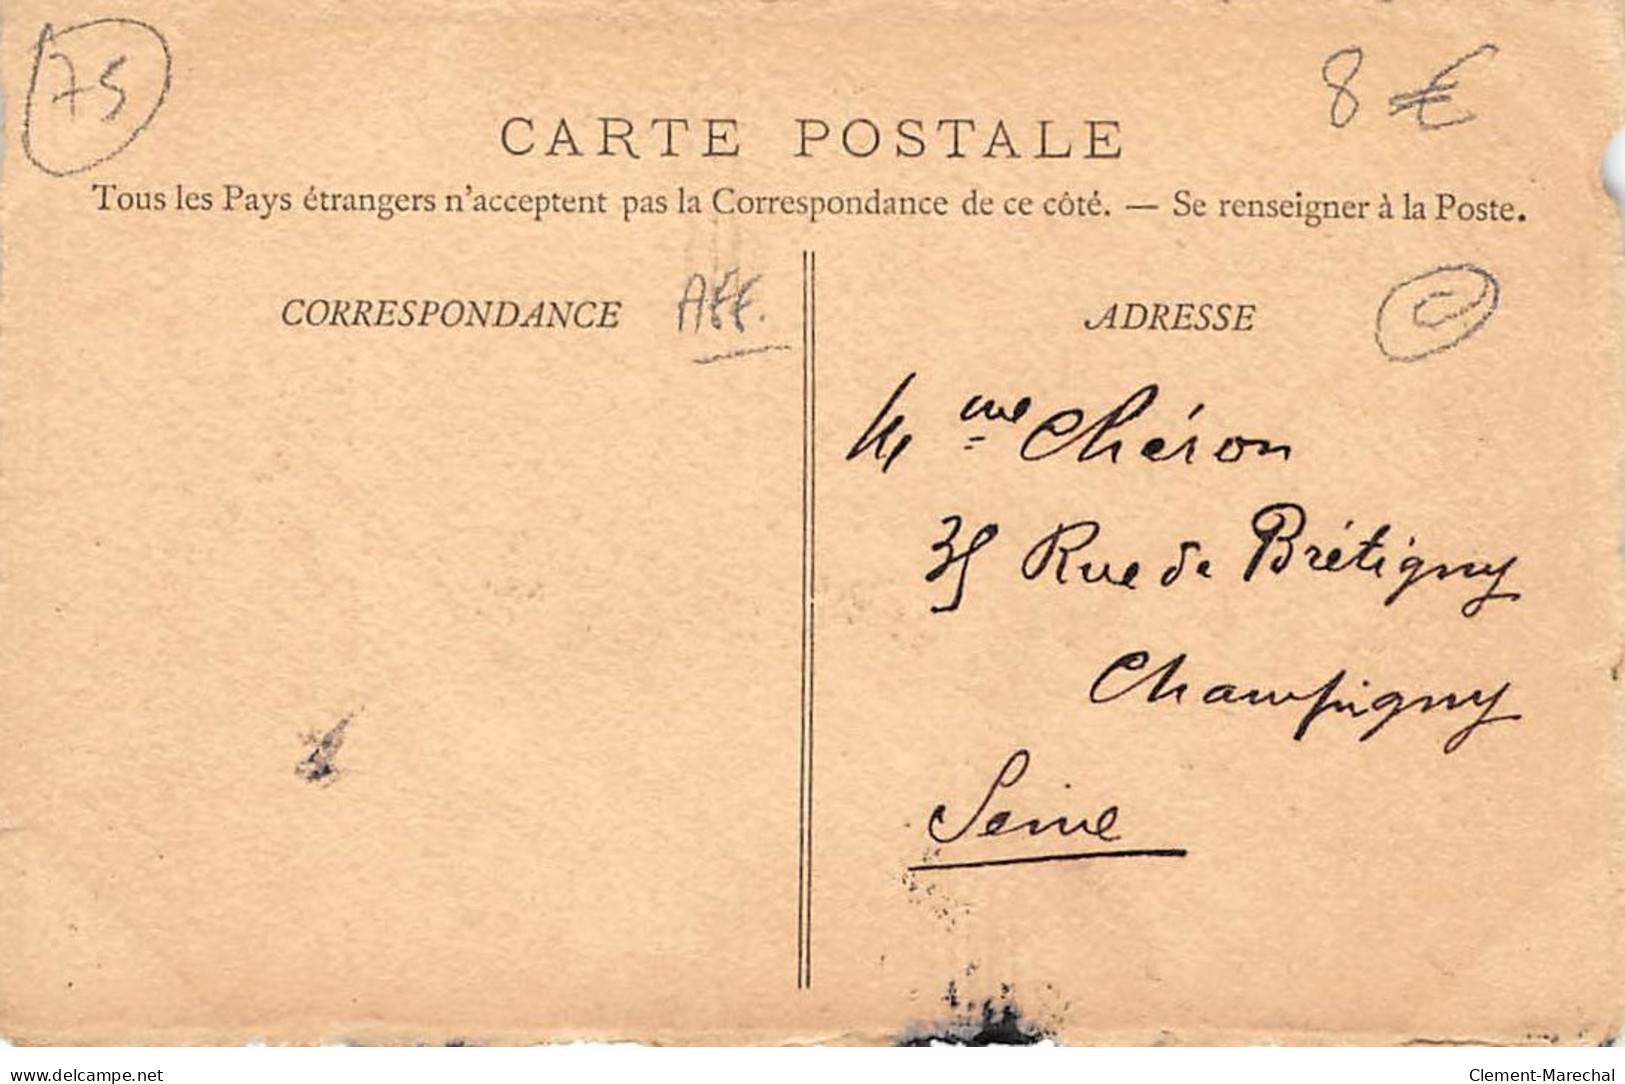 75
8 €
CARTE POSTALE
Tous les Pays étrangers n'acceptent pas la Correspondance de ce côté. — Se renseigner à la Poste.
CORRESPONDANCE
Aff.
ADRESSE
C
Mme Chéron
35 Rue de Brétigny
Champigny
Seine
delcampe.net
Clement-Marechal